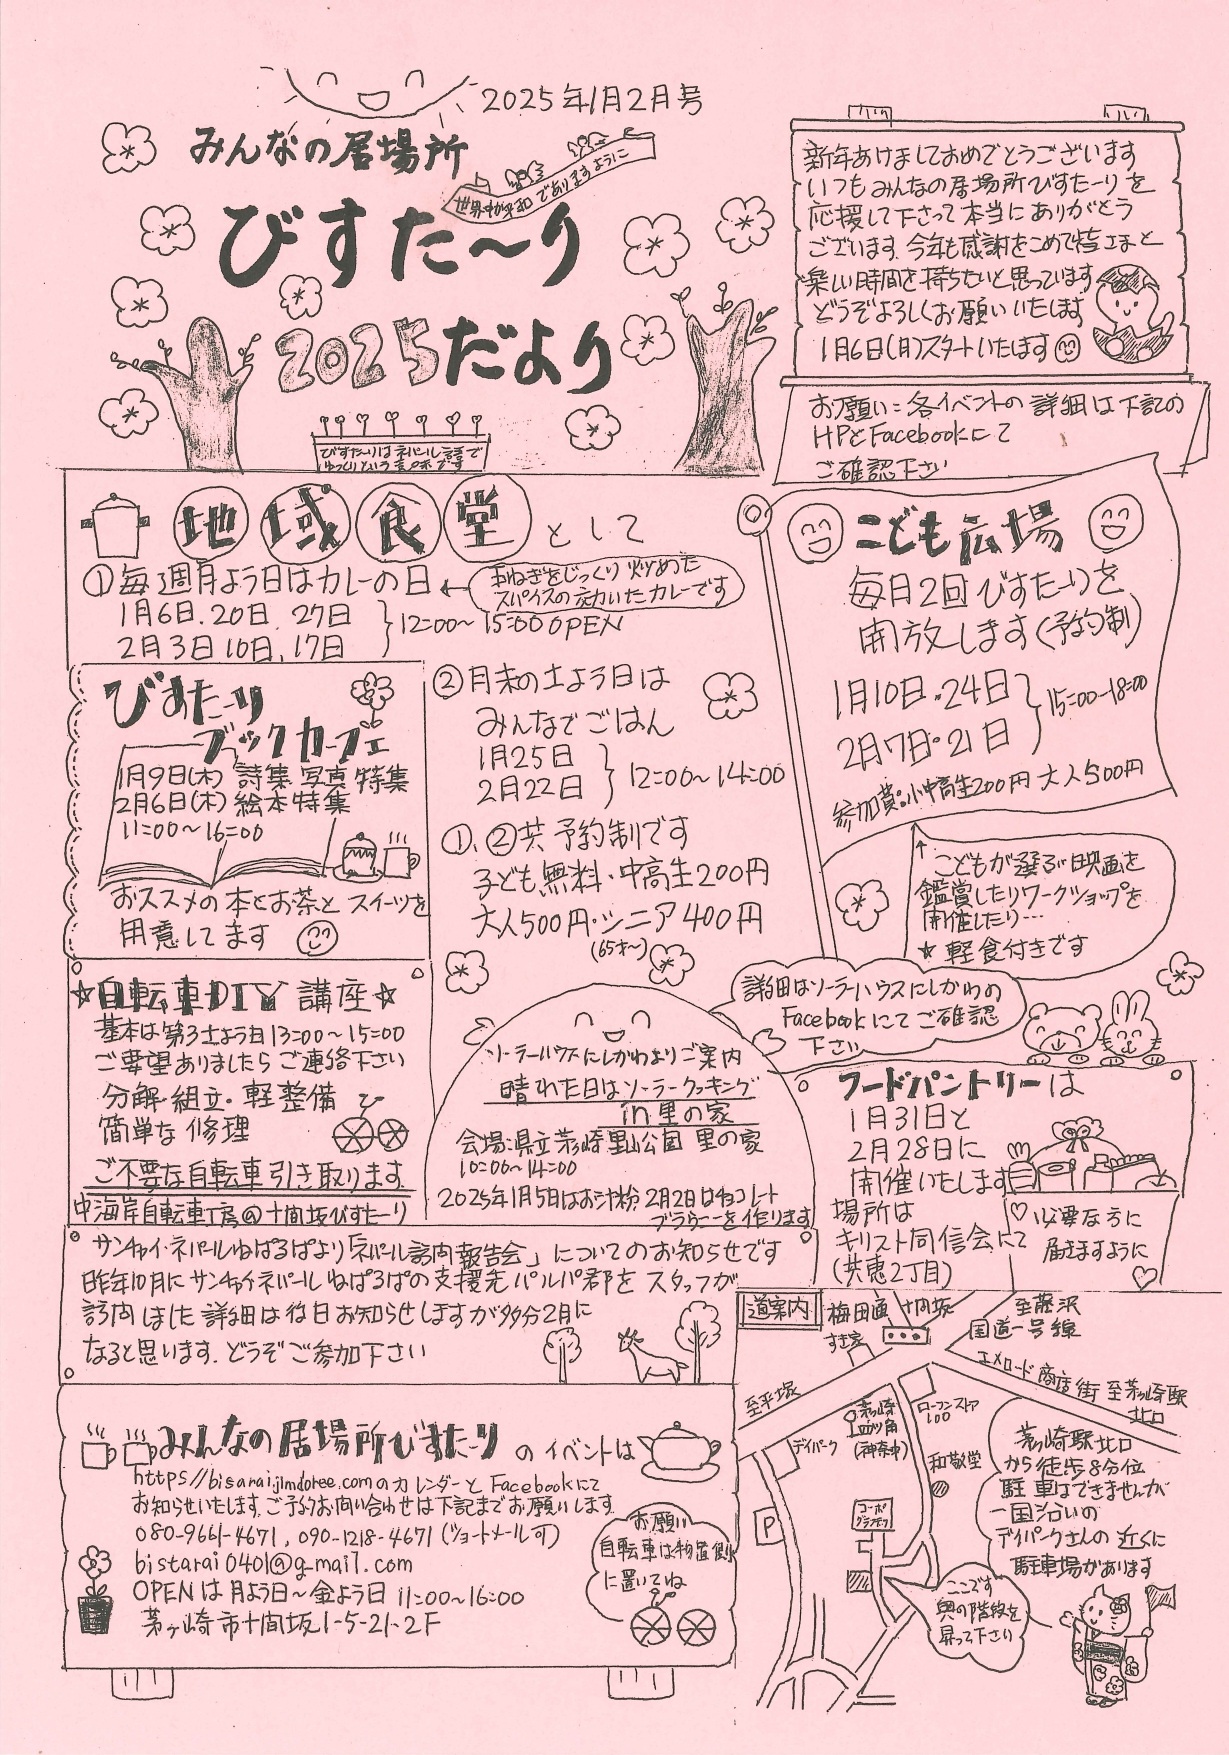 2025年1月2月号
みんなの居場所
世界中が平和でありますように
びすた〜り
2025だより
びすた〜りはネパール語で
ゆっくりという意味です
新年あけましておめでとうございます
いつもみんなの居場所びすたーりを
応援して下さって本当にありがとう
ございます。今年も感謝をこめて皆さまと
楽しい時間を持ちたいと思っています
どうぞよろしくお願いいたします
1月6日(月)スタートいたします
お願い:各イベントの詳細は下記の
HPとFacebookにて
ご確認下さい
地域食堂として
①毎週月よう日はカレーの日
玉ねぎをじっくり炒めた
スパイスの効いたカレーです
1月6日.20日.27日
2月3日10日.17日
12:00〜15:00 OPEN
②月末の土よう日は
みんなでごはん
1月25日
2月22日
12:00〜14:00
①.②共予約制です
子ども無料・中高生200円
大人500円・シニア400円
(65才〜)
こども広場
毎月2回びすたーりを
開放します(予約制)
1月10日・24日
2月7日・21日
15:00-18:00
参加費:小中高生200円 大人500円
こどもが選ぶ映画を
鑑賞したりワークショップを
開催したり…
★軽食付きです
びすたーり
ブックカフェ
1月9日(木) 詩集 写真特集
2月6日(木) 絵本特集
11:00〜16:00
おススメの本とお茶とスイーツを
用意してます
☆自転車DIY講座☆
基本は第3土よう日13:00〜15:00
ご要望ありましたらご連絡下さい
分解・組立・軽整備
簡単な修理
ご不要な自転車引き取ります
中海岸自転車工房@十間坂びすたーり
詳細はソーラーハウスにしかわの
Facebookにてご確認
下さい
ソーラーハウスにしかわよりご案内
晴れた日はソーラークッキング
in里の家
会場:県立茅ヶ崎里山公園 里の家
10:00〜14:00
2025年1月5日はお汁粉、2月2日はチョコレート
ブラウニーを作ります
フードパントリーは
1月31日と
2月28日に
開催いたします
場所は
キリスト同信会にて
(共恵2丁目)
♡必要な方に
届きますように
サンチャイ・ネパールねぱるぱより「ネパール訪問報告会」についてのお知らせです
昨年10月にサンチャイネパールねぱるぱの支援先パルパ郡をスタッフが
訪問しました 詳細は後日お知らせしますが多分2月に
なると思います。どうぞご参加下さい
みんなの居場所びすたーりのイベントは
https://bisarai.jimdoree.comのカレンダーとFacebookにて
お知らせいたします。ご予約お問い合わせは下記までお願いします
080-9661-4671, 090-1218-4671(ショートメール可)
bistarai0401@g-mail.com
OPENは月よう日〜金よう日 11:00〜16:00
茅ヶ崎市十間坂1-5-21-2F
お願い
自転車は物置側
に置いてね
道案内
梅田通
十間坂
すき家
至藤沢
国道一号線
エメロード商店街 至茅ヶ崎駅
北口
至平塚
デイパーク
茅ヶ崎
(神奈中)
ローソンストア
100
和敬堂
P
コーポ
茅ヶ崎駅北口
から徒歩8分位
駐車はできませんが
一国沿いの
デイパークさんの近くに
駐車場があります
ここです
奥の階段を
昇って下さい